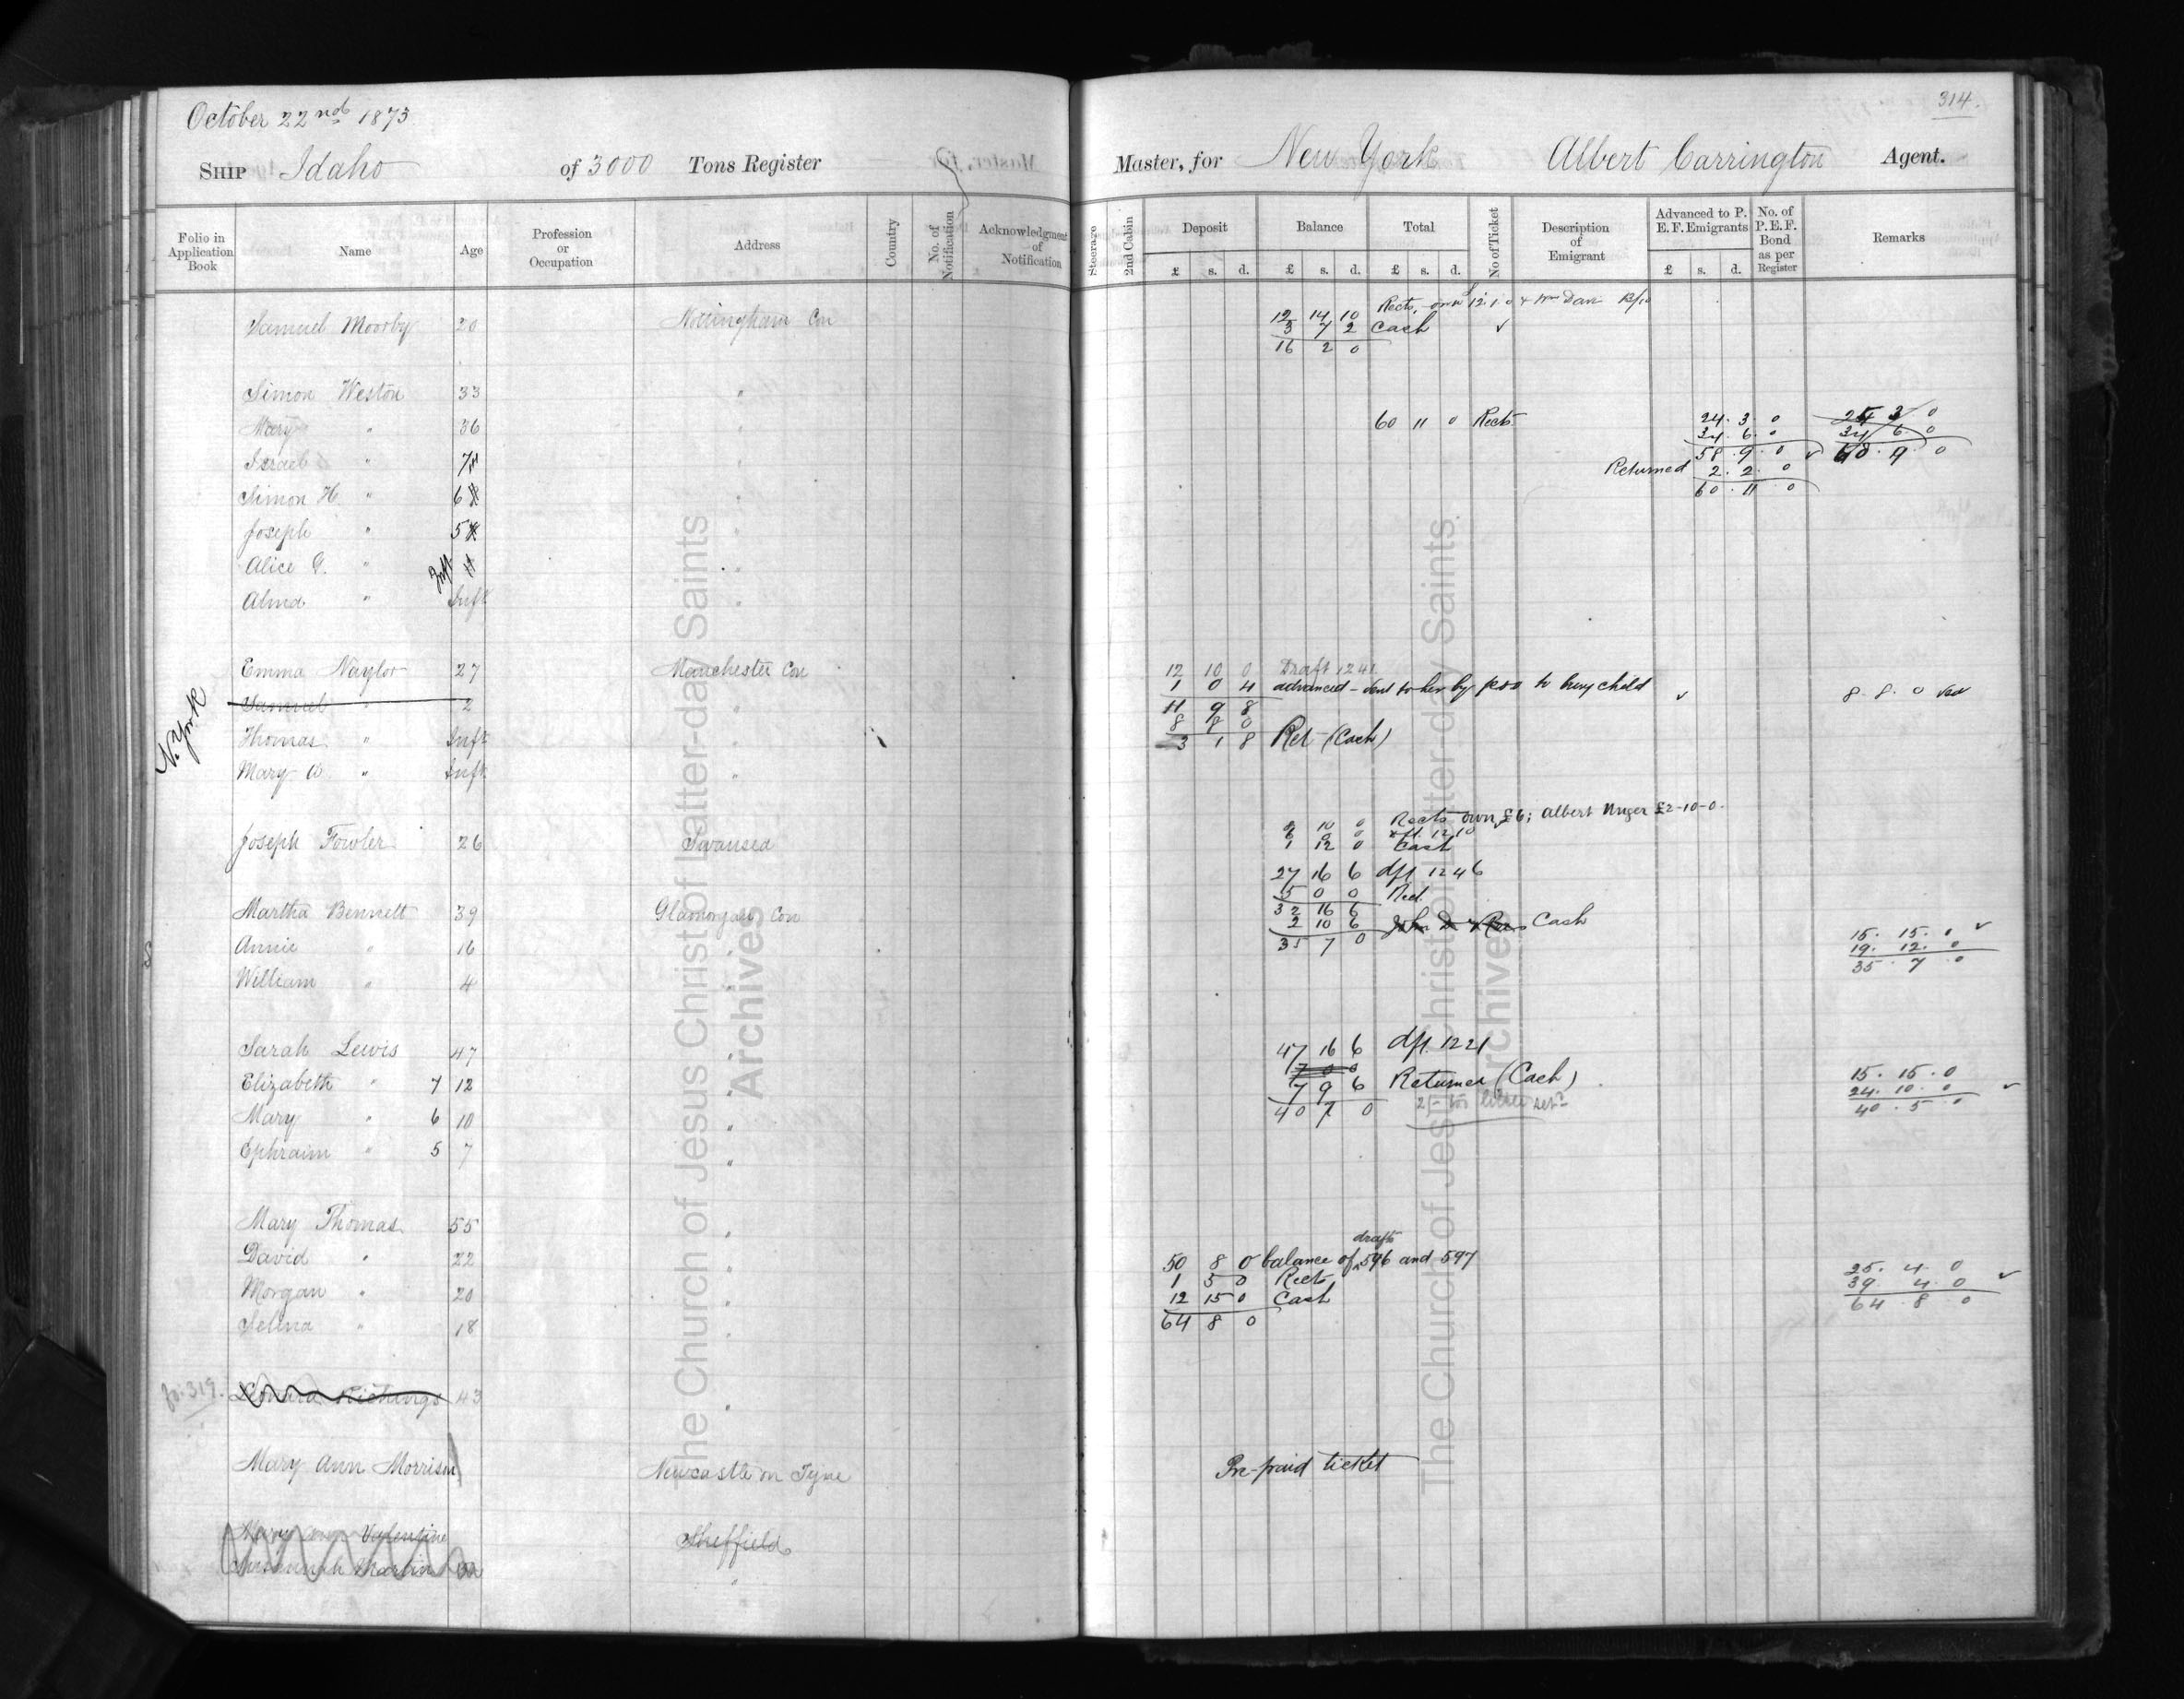 314.
October 22nd 1873
SHIP Idaho of 3000 Tons Register Master, for New York Albert Carrington Agent.
Folio in Application Book Name Age Profession or Occupation Address Country No. of Notification Acknowledgment of Notification Steerage 2nd Cabin Deposit Balance Total No of Ticket Description of Emigrant Advanced to P. E. F. Emigrants No. of P. E. F. Bond as per Register Remarks
£ s. d. £ s. d. £ s. d. £ s. d.
Rects, own 12.1.0 & Wm
12 14 10
Samuel Moorby 20 Nottingham Con 3 7 2 Cash ✓
16 2 0
Simon Weston 33 "
Mary " 36 " 60 11 0 Rects. 24. 3. 0
34. 6. 0 34 6. 0
Israel " 7 58. 9. 0 ✓ 60. 9. 0
Returned 2. 2. 0
Simon H. " 6 " 60. 11. 0
Joseph " 5 "
Alice G. " Inft "
Alma " Inft "
Emma Naylor 27 Manchester Con 12 10 0 Draft 1241
1 0 4 advanced - sent to her by to bury child ✓ 8. 8. 0
Samuel " 2 " 11 9 8
N. York
8 8 0
Thomas " Inft " 3 1 8 Ret (Cash)
Mary " Inft "
Rects own £6; Albert £2-10-0
8 10 0
6 0 0 dft. 1210
Joseph Fowler 26 Swansea 1 12 0 Cash
27 16 6 dft 1246
5 0 0 Rect.
Martha Bennett 39 Glamorgan Con 32 16 6
2 10 6 Cash
Annie " 16 " 35 7 0 15. 15. 0 ✓
19. 12. 0
William " 4 " 35. 7. 0
Sarah Lewis 47 " 47 16 6 dft. 1221
7 0 0
Elizabeth " 7 12 " 7 9 6 Returned (Cash) 15. 15. 0
24. 10. 0 ✓
Mary " 6 10 " 40 7 0 40. 5. 0
Ephraim " 5 7 "
Mary Thomas 55 "
drafts
David " 22 " 50 8 0 balance of 596 and 597
1 5 0 Rects 25. 4. 0
Morgan " 20 " 12 15 0 Cash 39. 4. 0 ✓
64. 8. 0
Selina " 18 " 64 8 0
fo. 319. 43 "
Mary Ann Morrison Newcastle on Tyne Pre-paid ticket
Mary Ann Valentine Sheffield
"
The Church of Jesus Christ of Latter-day Saints
Archives
The Church of Jesus Christ of Latter-day Saints
Archives